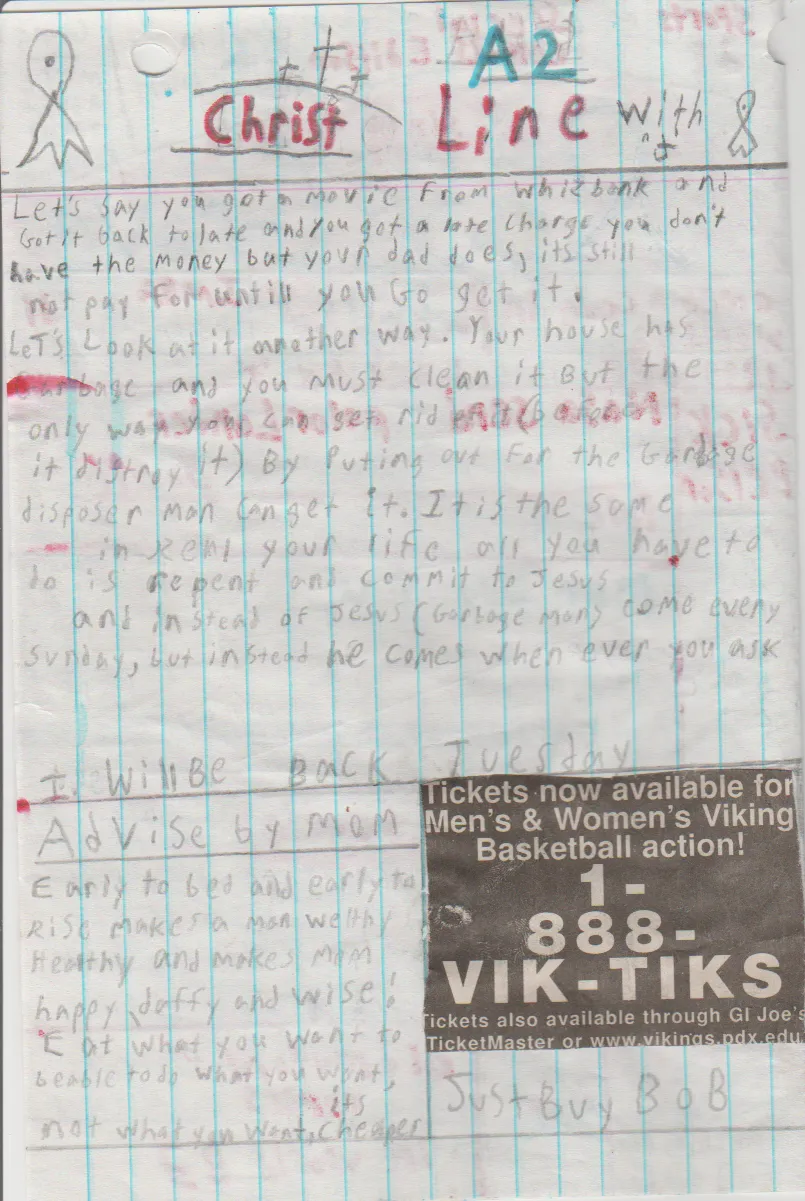 A2
Christ Line with
Let's say you got a movie from whizbank and
Got it back to late and you got a late charge you don't
have the money but your dad does, its still
not pay for untill you Go get it.
LeT's Look at it another way. Your house has
Garbage and you must clean it But the
only way you can get rid of it (Before
it distroy it) By Puting out for the Garbage
disposer man can get it. It is the same
in your life all you have to
do is repent and commit to Jesus
and instead of Jesus (Garbage man) come every
Sunday, but instead he comes when ever you ask
I. Will Be Back Tuesday
AdVise by mom
Early to bed and early to
Rise makes a man welthy
Healthy and makes mom
happy, daffy and wise!
Eat what you want to
beable to do what you want,
its
not what you want, cheaper
Tickets now available for
Men's & Women's Viking
Basketball action!
1-
888-
VIK-TIKS
Tickets also available through GI Joe's
TicketMaster or www.vikings.pdx.edu
Just Buy BoB